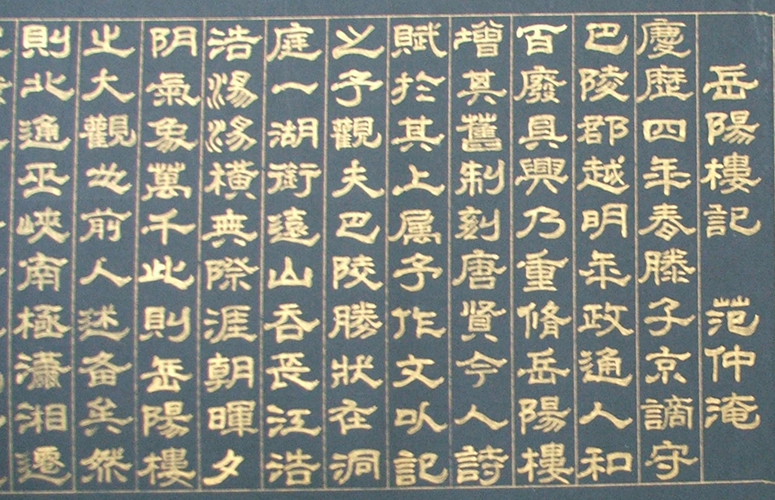 岳陽樓記 范仲淹
慶歷四年春滕子京謫守
巴陵郡越明年政通人和
百廢具興乃重脩岳陽樓
增其舊制刻唐賢今人詩
賦於其上属予作文以記
之予觀夫巴陵勝狀在洞
庭一湖銜遠山吞長江浩
浩湯湯橫無際涯朝暉夕
阴氣象萬千此則岳陽樓
之大觀也前人述备矣然
則北通巫峽南極瀟湘遷